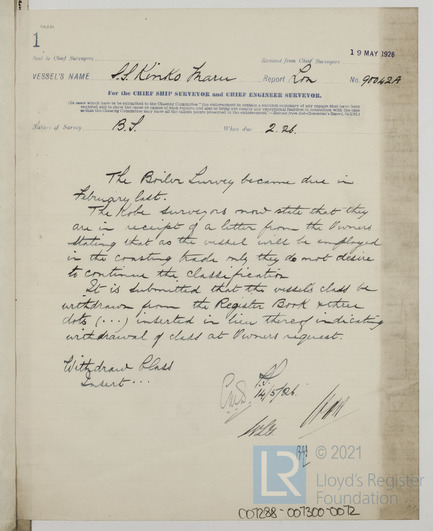 1
19 MAY 1926
Sent to Chief Surveyors
Received from Chief Surveyors
VESSEL'S NAME S.S. Kinko Maru Report Lon No. 95042A
For the CHIEF SHIP SURVEYOR and CHIEF ENGINEER SURVEYOR.
Nature of Survey B.S. When due 2.26.
The Boiler Survey became due in
February last.
The Kobe Surveyors now state that they
are in receipt of a letter from the Owners
stating that as the vessel will be employed
in the coasting trade only they do not desire
to continue the classification
It is submitted that the vessel's class be
withdrawn from the Register Book & three
dots (...) inserted in lieu thereof indicating
withdrawal of class at Owners request.
Withdraw Class
Insert ...
14/5/26.
LR
© 2021
Lloyd's Register
Foundation
007288-007300-0072